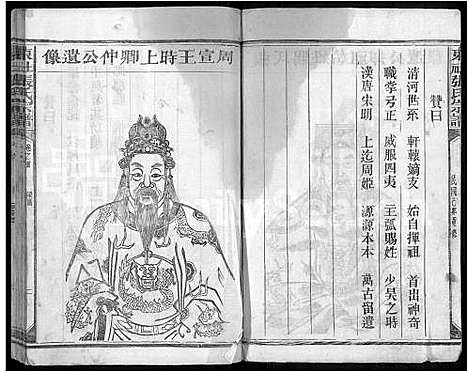 東祉張氏宗譜
贊曰
清河世系　軒轅嫡支　始自揮祖　首出神奇
職掌弓正　威服四夷　主弧賜姓　少昊之時
漢唐宋明　上迄周姬　源源本本　萬古留遺
周宣王時上卿仲公遺像